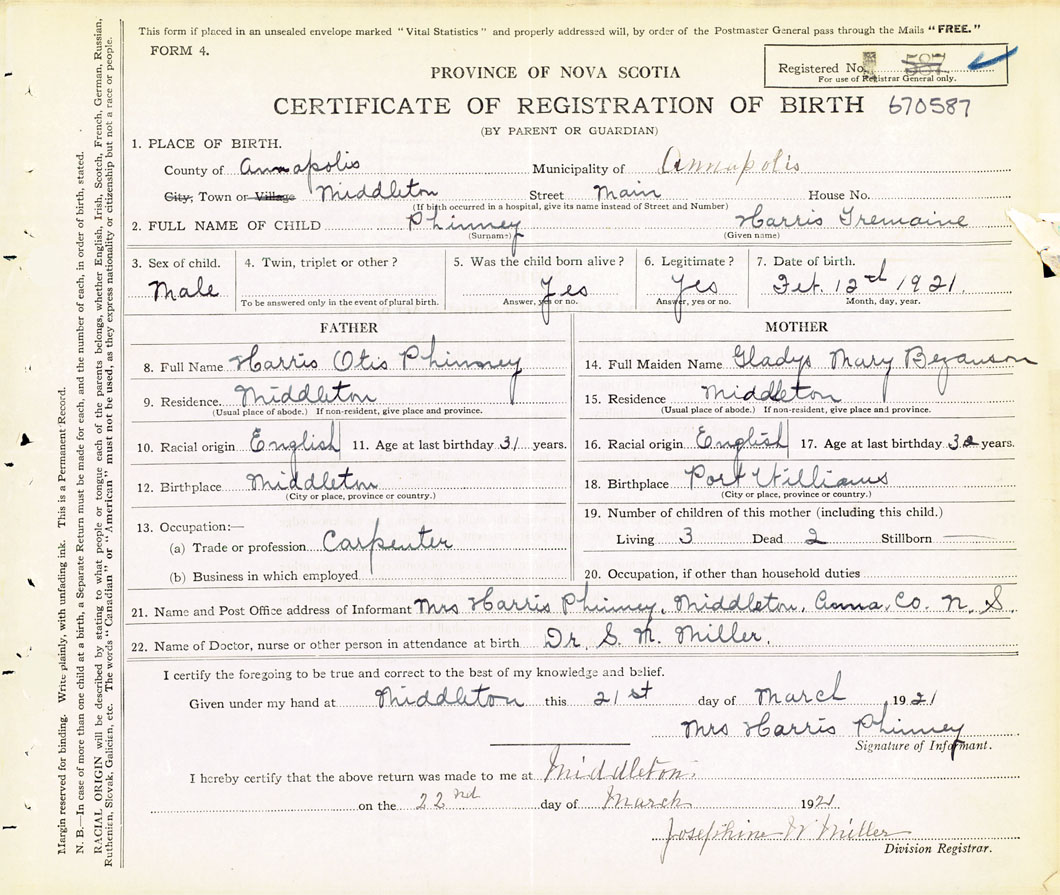 This form if placed in an unsealed envelope marked "Vital Statistics" and properly addressed will, by order of the Postmaster General pass through the Mails "FREE."
FORM 4.
Registered No.
For use of Registrar General only.
PROVINCE OF NOVA SCOTIA
CERTIFICATE OF REGISTRATION OF BIRTH 670587
(BY PARENT OR GUARDIAN)
1. PLACE OF BIRTH.
County of Annapolis Municipality of Annapolis
City, Town or Village Middleton Street Main House No.
(If birth occurred in a hospital, give its name instead of Street and Number)
2. FULL NAME OF CHILD Phinney Harris Tremaine
(Surname) (Given name)
3. Sex of child. 4. Twin, triplet or other? 5. Was the child born alive? 6. Legitimate? 7. Date of birth.
Male Yes Yes Feb. 12th 1921.
To be answered only in the event of plural birth. Answer, yes or no. Answer, yes or no. Month, day, year.
FATHER MOTHER
8. Full Name Harris Otis Phinney 14. Full Maiden Name Gladys Mary Bezanson
9. Residence Middleton 15. Residence Middleton
(Usual place of abode.) If non-resident, give place and province. (Usual place of abode.) If non-resident, give place and province.
10. Racial origin English 11. Age at last birthday 31 years. 16. Racial origin English 17. Age at last birthday 32 years.
12. Birthplace Middleton 18. Birthplace Port Williams
(City or place, province or country.) (City or place, province or country.)
13. Occupation:— 19. Number of children of this mother (including this child.)
(a) Trade or profession Carpenter Living 3 Dead 2 Stillborn —
(b) Business in which employed 20. Occupation, if other than household duties
21. Name and Post Office address of Informant Mrs Harris Phinney, Middleton, Anna. Co. N. S.
22. Name of Doctor, nurse or other person in attendance at birth Dr. S. M. Miller.
I certify the foregoing to be true and correct to the best of my knowledge and belief.
Given under my hand at Middleton this 21st day of March 1921
Mrs Harris Phinney
Signature of Informant.
I hereby certify that the above return was made to me at Middleton.
on the 22nd day of March 1921
Josephine W Miller
Division Registrar.
Margin reserved for binding. Write plainly, with unfading ink. This is a Permanent Record.
N. B.—In case of more than one child at a birth, a Separate Return must be made for each, and the number of each, in order of birth, stated.
RACIAL ORIGIN will be described by stating to what people or tongue each of the parents belongs, whether English, Irish, Scotch, French, German, Russian,
Ruthenian, Slovak, Galician, etc. The words "Canadian" or "American" must not be used, as they express nationality or citizenship but not a race or people.